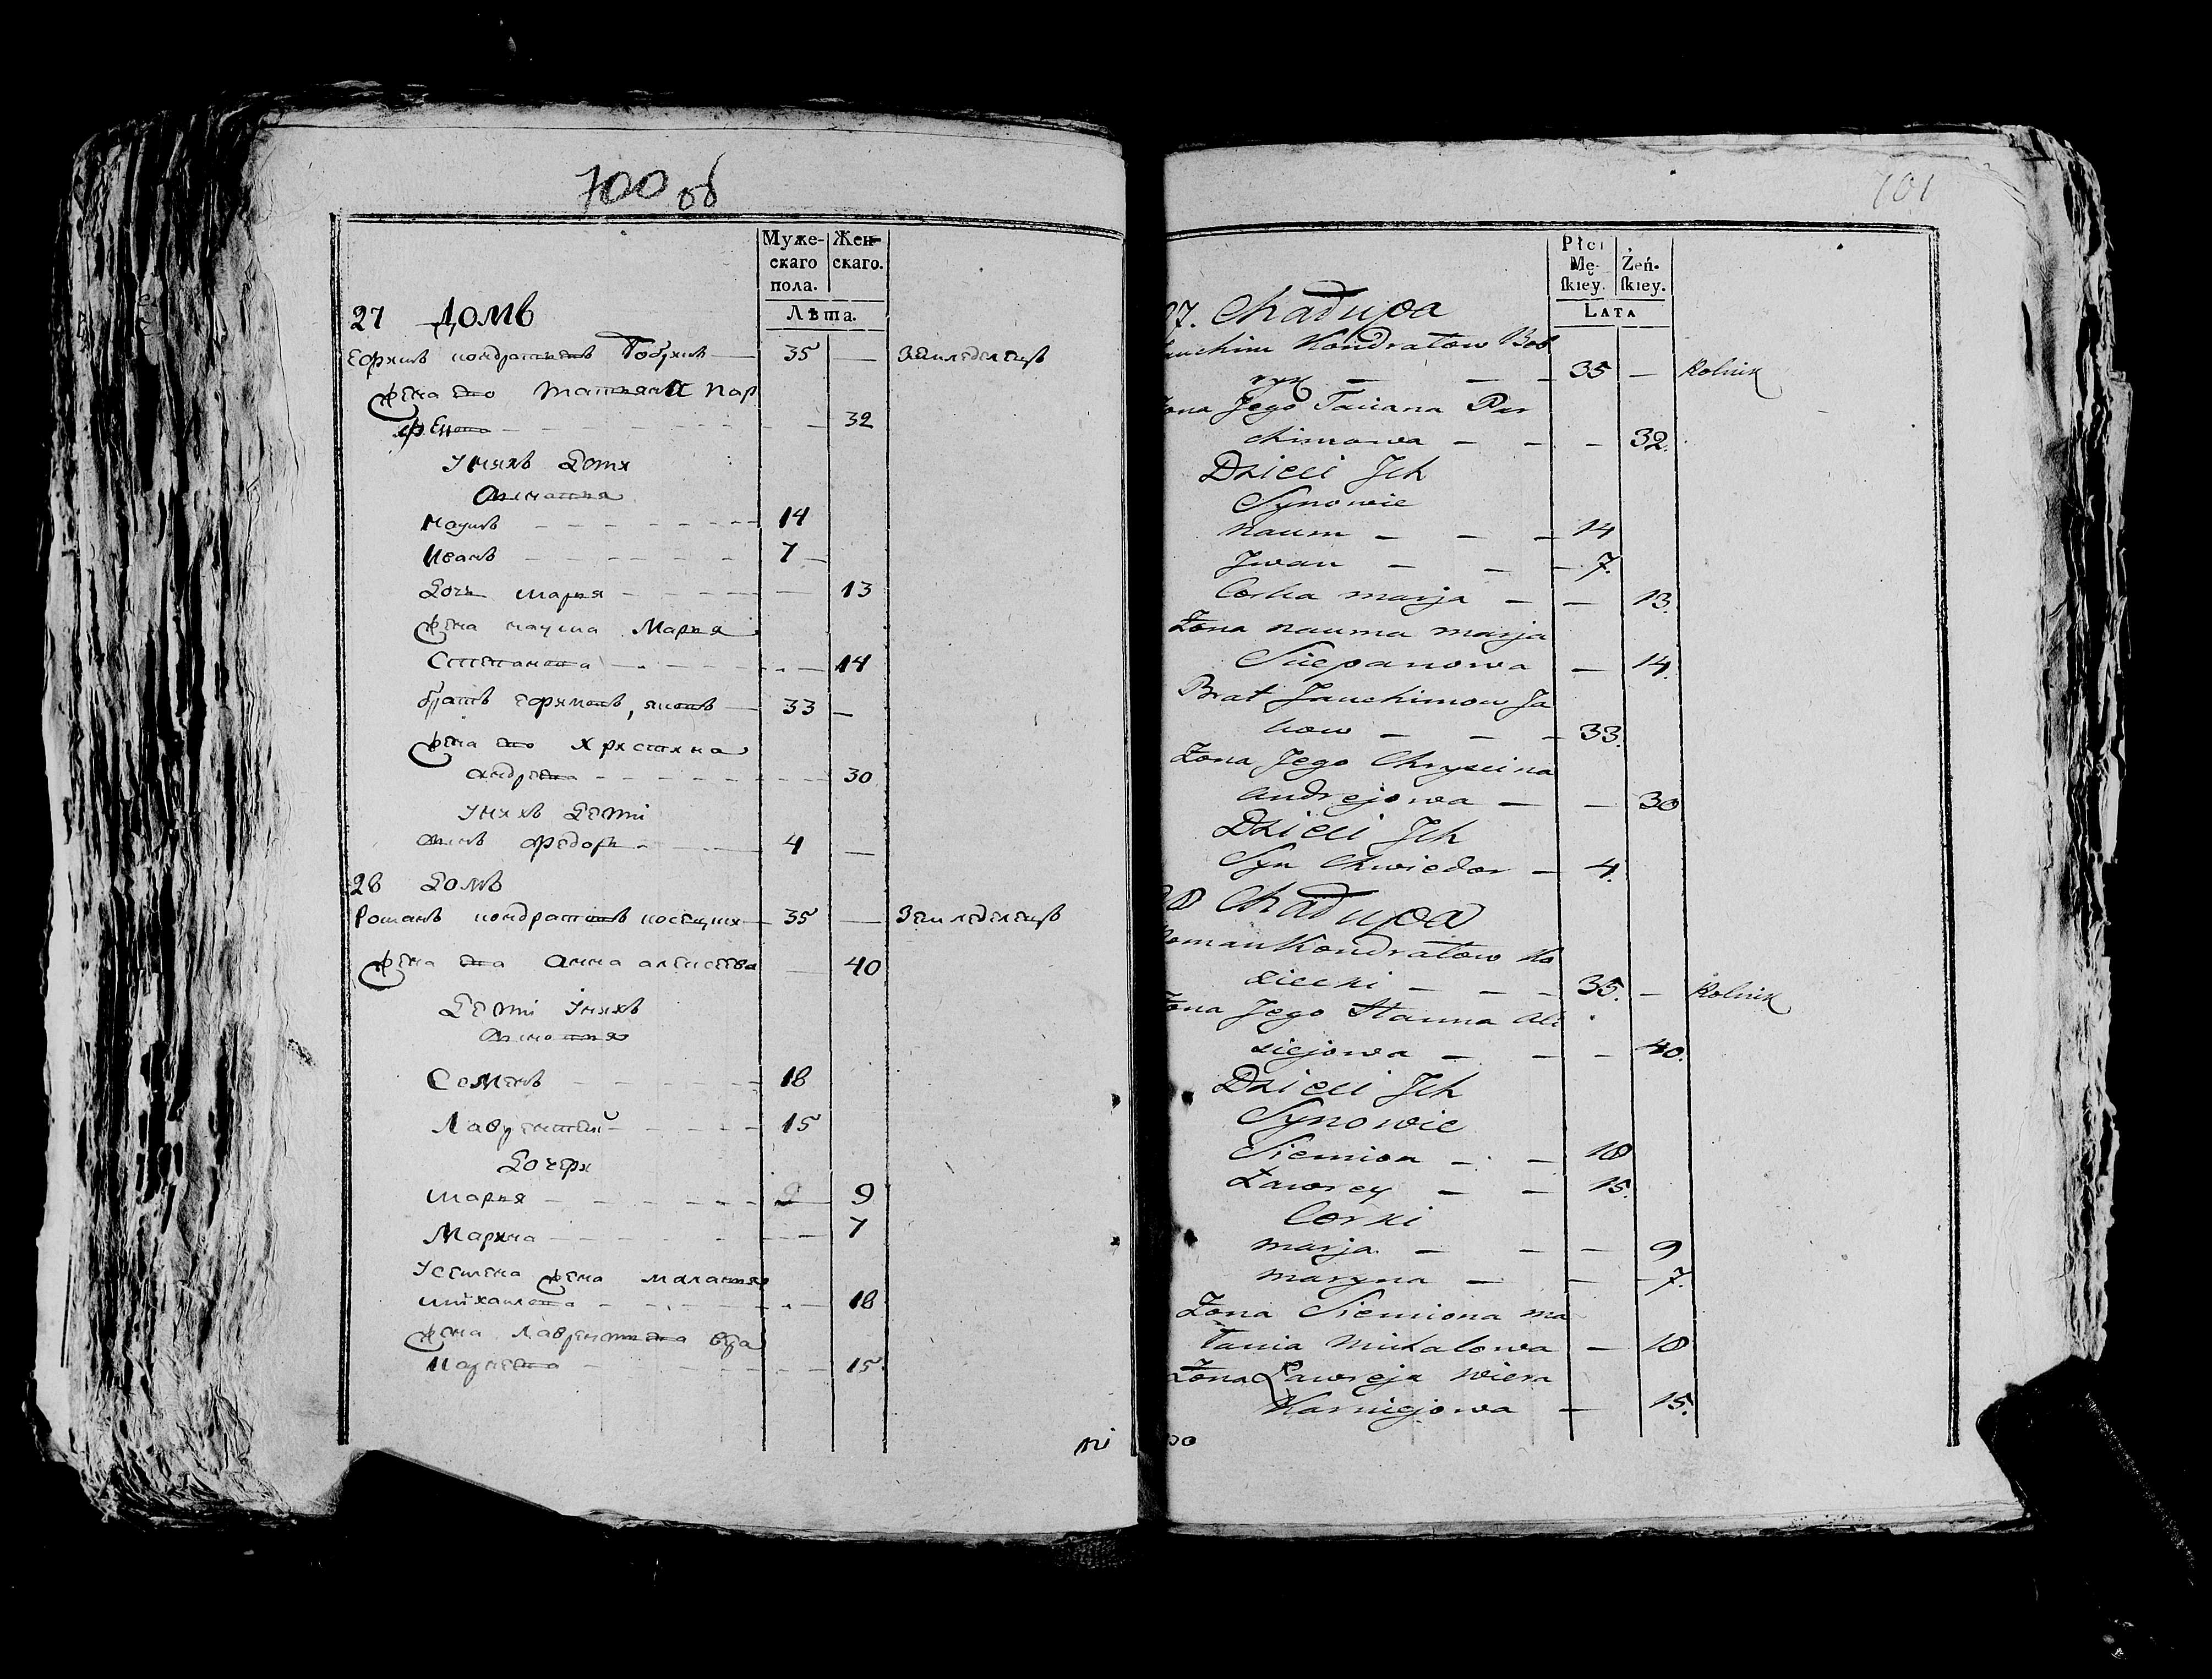 100 об
Муже- Жен-
скаго скаго.
пола.
Лѣта.
27 Домъ
Ефимъ кондратьевъ Бобрик — 35 — Земледелецъ
Жена его Татьяна пар
фенова — — 32
У них Дети
Сыновья
наумъ — 14
Иванъ — 7 —
Дочь Марья — — 13
Жена наума Марья
Степанова — — 14
братъ ефимовъ, яковъ — 33 —
Жена его Христина
андреева — — 30
У нихъ Дети
сынъ Федоръ — 4 —
28 Домъ
Романъ кондратовъ косецки — 35 — Земледелецъ
Жена его Анна алексеева — 40
Дети У нихъ
Сыновья
Семенъ — 18
Лаврентей — 15
Дочери
Марья — — 9
Марина — — 7
У семена Жена маланья
михаилова — — 18
Жена лаврентьева вера
карнеева — — 15
101
Płci
Mę- Żeń-
ſkiey. ſkiey.
LATA
27. Chałupa
Jauchim Kondratow Bob
ryk — — 35 — Rolnik
Zona Jego Taciana Par
chimowa — — — 32.
Dzieci Jch
Synowie
Naum — — 14
Jwan — — 7.
Corka marja — — 13.
Zona nauma marja
Sciepanowa — 14.
Brat Jauchimow Ja
kow — — 33.
Zona Jego Chryscina
Andrejowa — — 30
Dzieci Jch
Syn Chwiedor — 4.
28 Chałupa
Roman Kondratow Ko
siecki — — 35. — Rolnik
Zona Jego Hanna Ale
xiejowa — — — 40.
Dzieci Jch
Synowie
Siemion — — 18
Ławrey — — 15.
Corki
marja — — — 9
maryna — — — 7.
Zona Siemiona ma
łania Michałowa — 18
Zona Ławreja wiera
Karniejowa — 15.